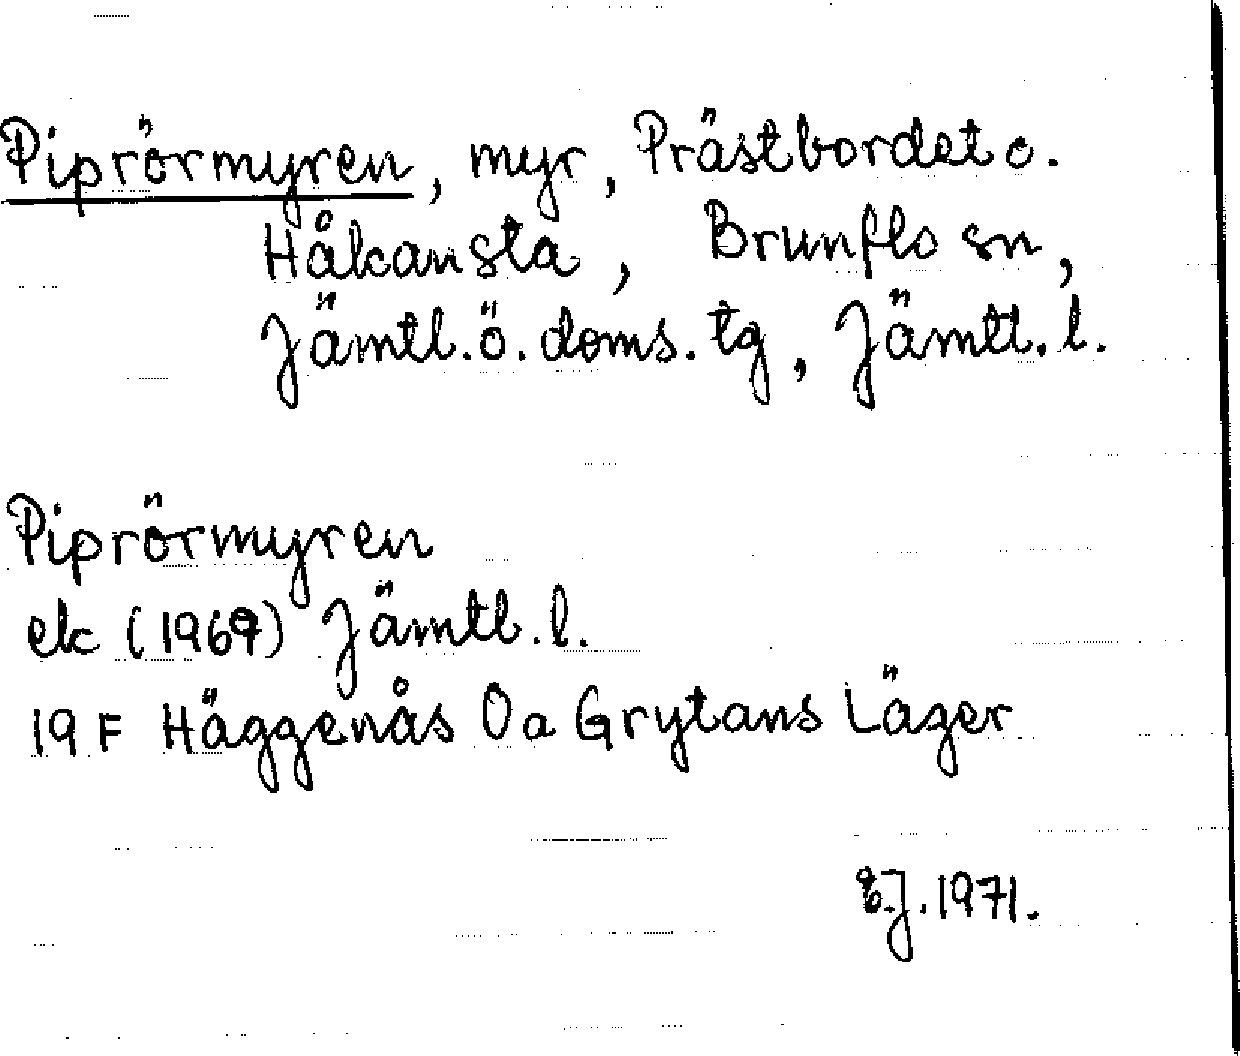 Piprörmyren, myr, Prästbordet o.
Håkansta, Brunflo sn,
Jämtl. ö. doms. tg, Jämtl. l.
Piprörmyren
ek (1969) Jämtl. l.
19 F Häggenås 0 a Grytans Läger
E.J. 1971.